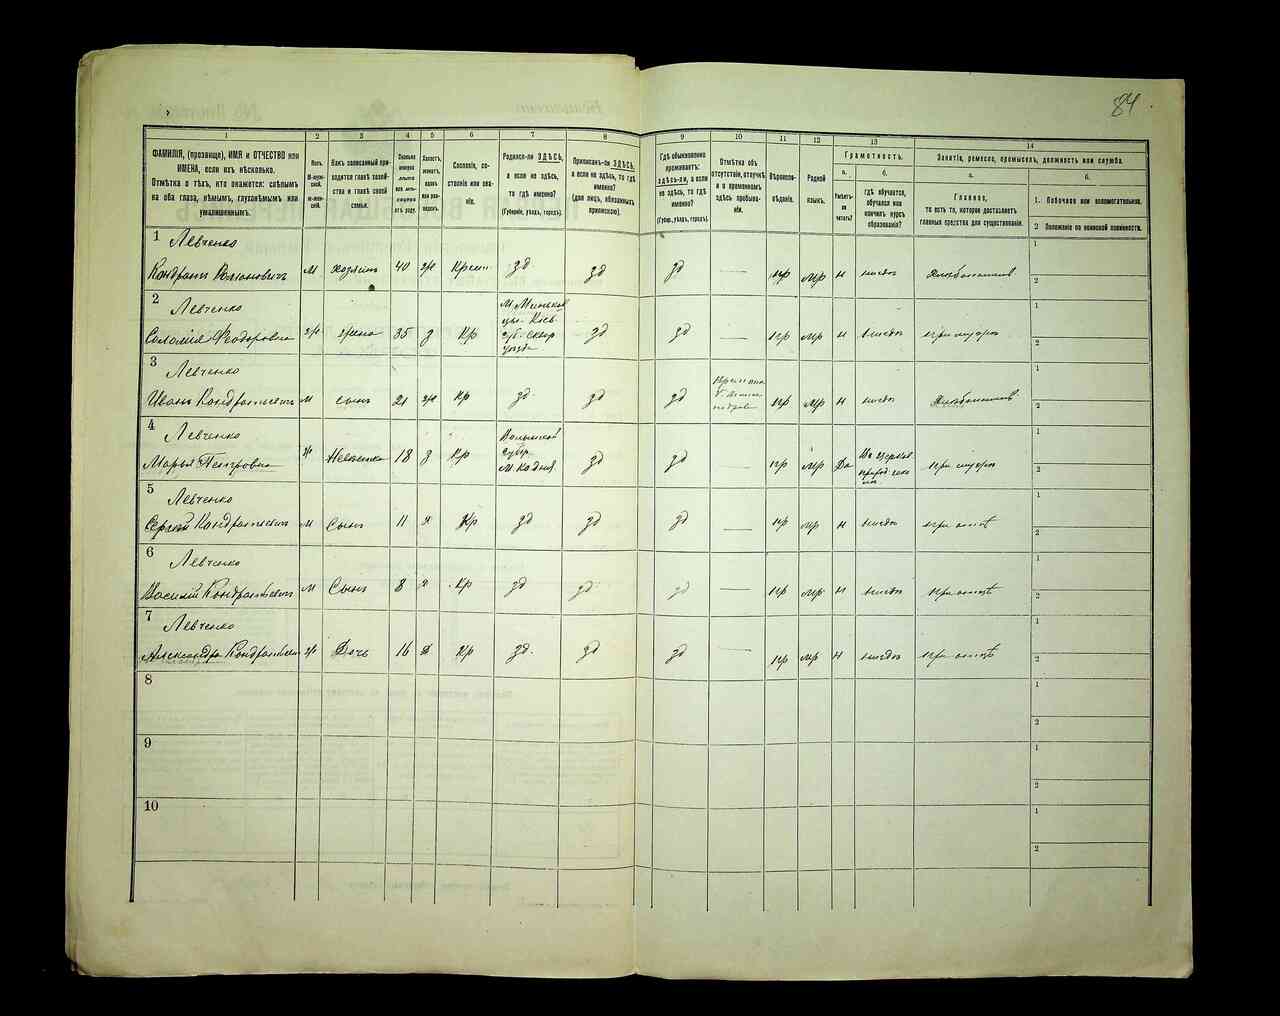 84
1
2
3
4
5
6
7
8
9
10
11
12
13
14
ФАМИЛІЯ, (прозвище), ИМЯ и ОТЧЕСТВО или
ИМЕНА, если ихъ нѣсколько.
Отмѣтка о тѣхъ, кто окажется: слѣпымъ
на оба глаза, нѣмымъ, глухонѣмымъ или
умалишеннымъ.
Полъ.
М-муж-
ской.
Ж-жен-
скій.
Какъ записанный при-
ходится главѣ хозяй-
ства и главѣ своей
семьи.
Сословіе, со-
стояніе или зва-
ніе.
Родился-ли ЗДѢСЬ,
а если не здѣсь,
то гдѣ именно?
(Губернія, уѣздъ, городъ).
Приписанъ-ли ЗДѢСЬ,
а если не здѣсь, то гдѣ
именно?
(для лицъ, обязанныхъ
припискою).
Гдѣ обыкновенно
проживаетъ:
здѣсь-ли, а если
не здѣсь, то гдѣ
именно?
(Губер., уѣздъ, городъ).
Отмѣтка объ
отсутствіи, отлучкѣ
и о временномъ
здѣсь пребыва-
ніи.
Вѣроиспо-
вѣданіе.
Родной
языкъ.
Грамотность.
а.
Умѣетъ-
ли
читать?
б.
гдѣ обучается,
обучался или
кончилъ курсъ
образованія?
Занятіе, ремесло, промыселъ, должность или служба.
а.
Главное,
то есть то, которое доставляетъ
главныя средства для существованія.
б.
1. Побочное или вспомогательное.
2 Положеніе по воинской повинности.
1 Левченко
Кондратъ Романовичъ м хозяинъ 40 ж Крест зд зд зд — пр мр н нигдѣ Хлѣбопашецъ
2 Левченко
Соломія Феодоровна ж жена 35 з Кр зд зд — пр мр н нигдѣ при мужѣ
3 Левченко
Иванъ Кондратьевичъ м сынъ 21 ж Кр зд зд зд пр мр н нигдѣ Хлѣбопашецъ
4 Левченко
Марья Петровна ж Невѣстка 18 з Кр
Волынской
губр.
М. Кодня
зд зд пр мр Да при мужѣ
5 Левченко
Сергѣй Кондратьевичъ м Сынъ 11 х Кр зд зд зд — пр мр н нигдѣ при отцѣ
6 Левченко
Василій Кондратьевичъ м Сынъ 8 х Кр зд зд зд — пр мр н нигдѣ при отцѣ
7 Левченко
Александра ж Дочь 16 Кр зд зд зд — пр мр н нигдѣ при отцѣ
8
9
10